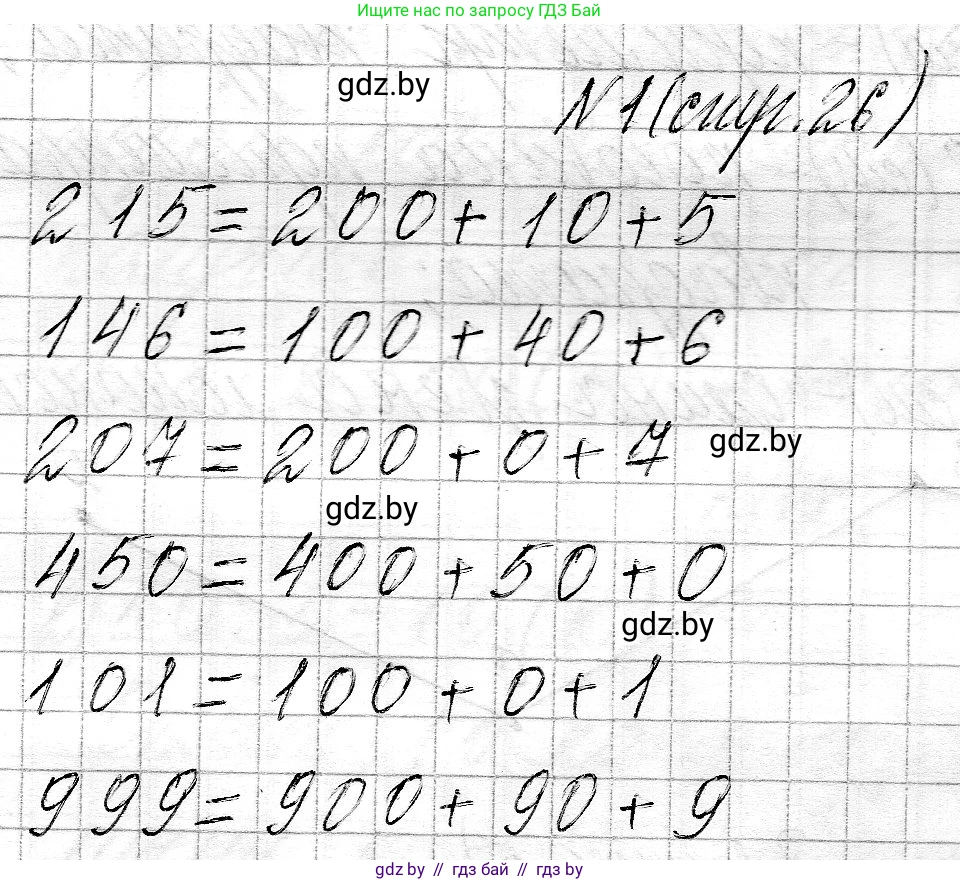 Ищите нас по запросу ГДЗ Бай
gdz.by
N1(стр.26)
215=200+10+5
146=100+40+6
207=200+0+7
gdz.by
gdz.by
450=400+50+0
gdz.by
101=100+0+1
999=900+90+9
gdz.by // гдз бай // gdz.by